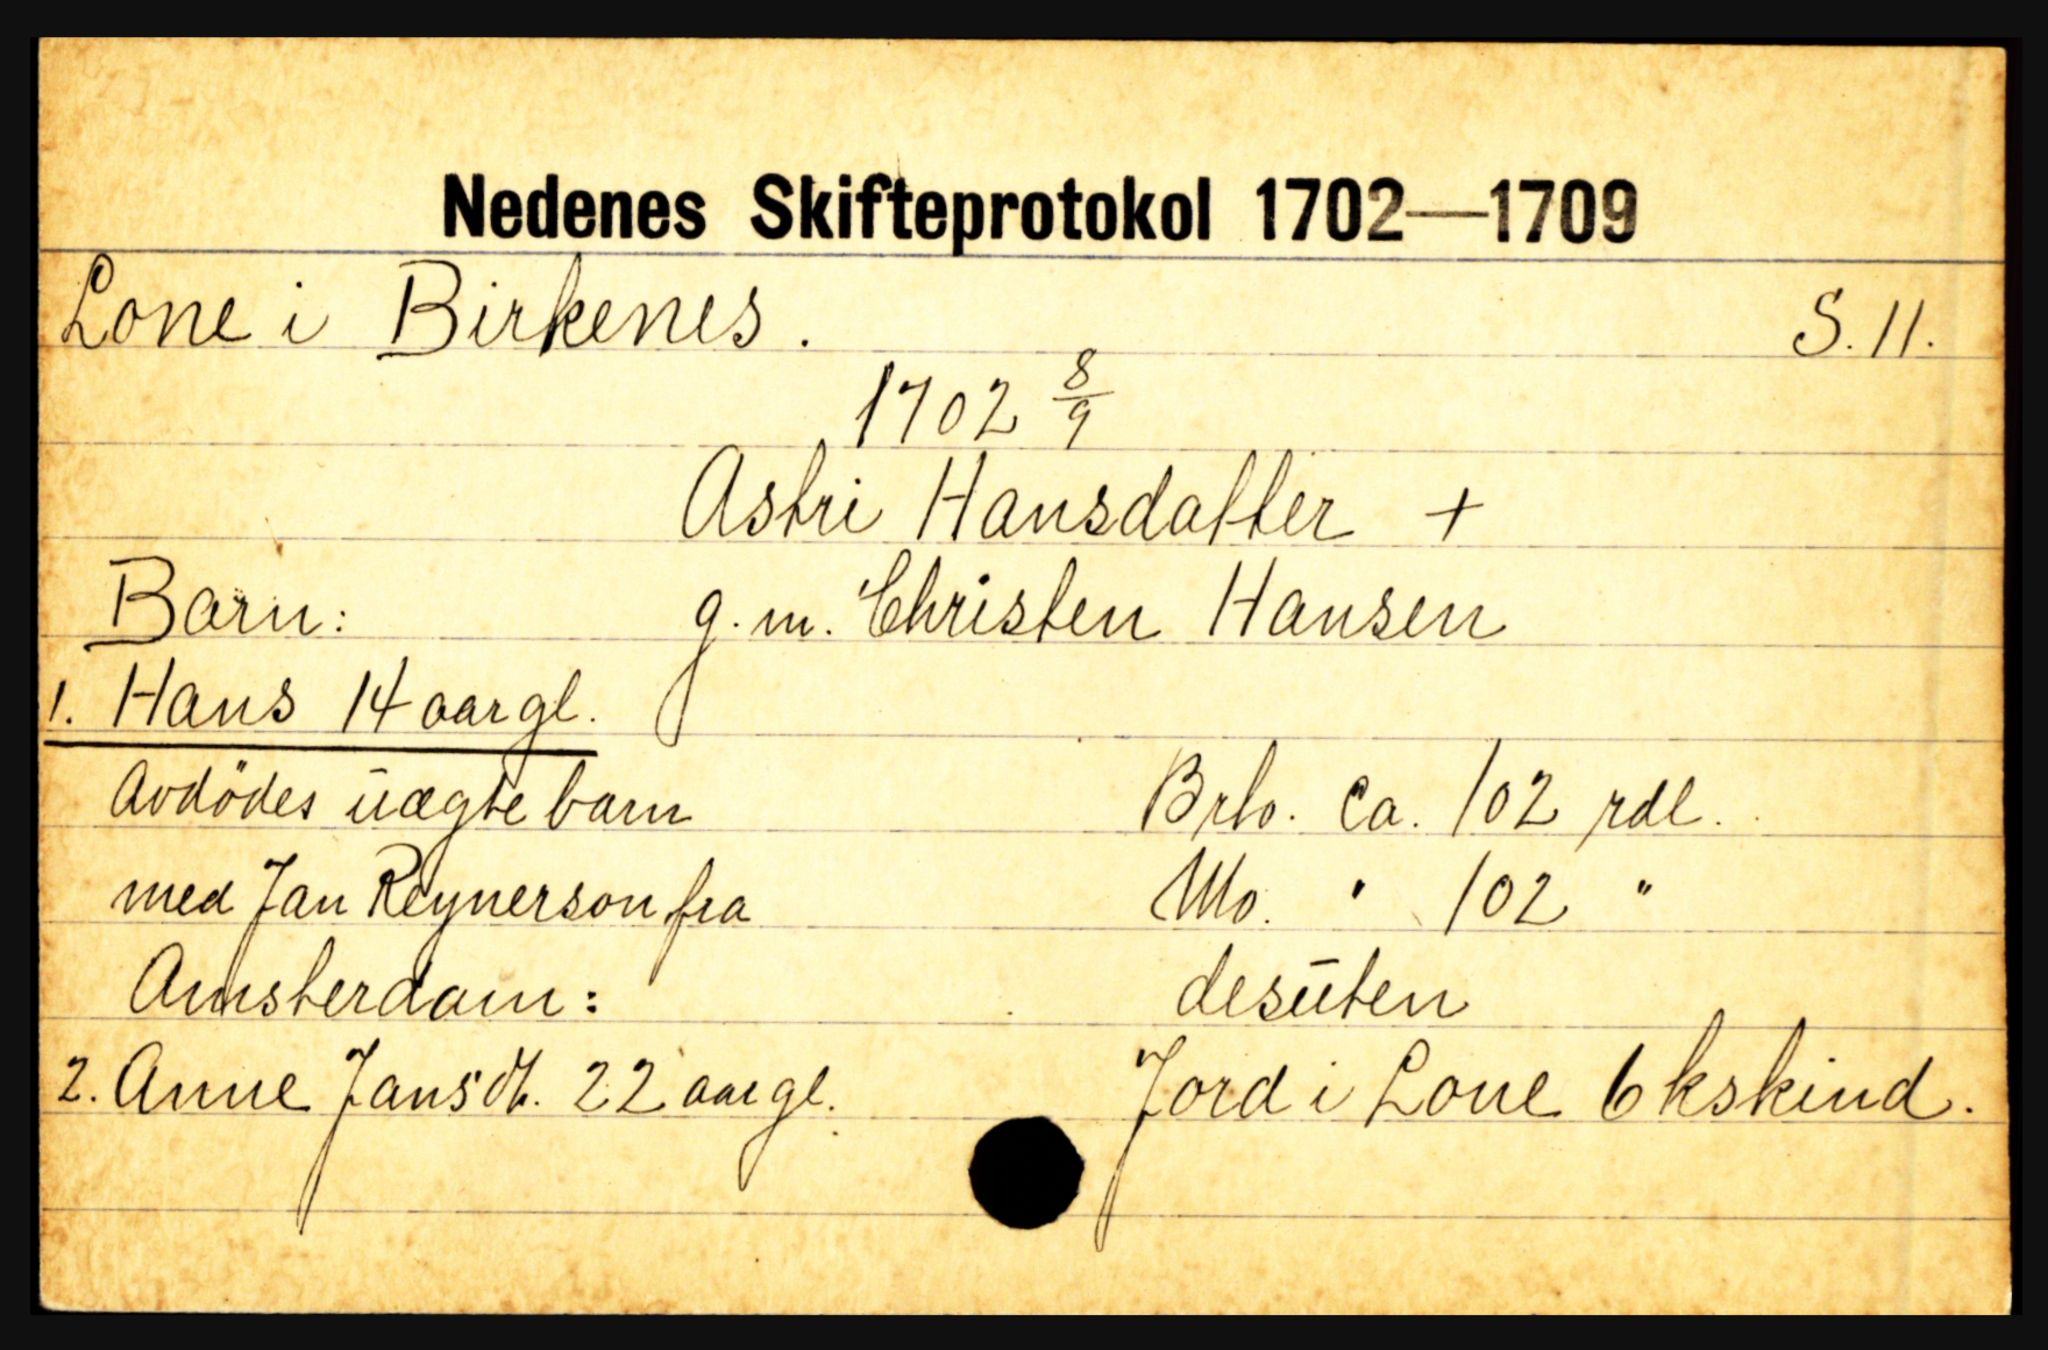 Nedenes Skifteprotokol 1702—1709
Lone i Birkenes. S. 11.
1702 8/9
Astri Hansdatter +
Barn: g. m. Christen Hansen
1. Hans 14 aar gl.
Avdödes uægte barn Brto. ca. 102 rdl.
med Jan Reynerson fra Nto. " 102 "
Amsterdam: desuten
2. Anne Jansdt. 22 aar gl. Jord i Lone 6 kskind.